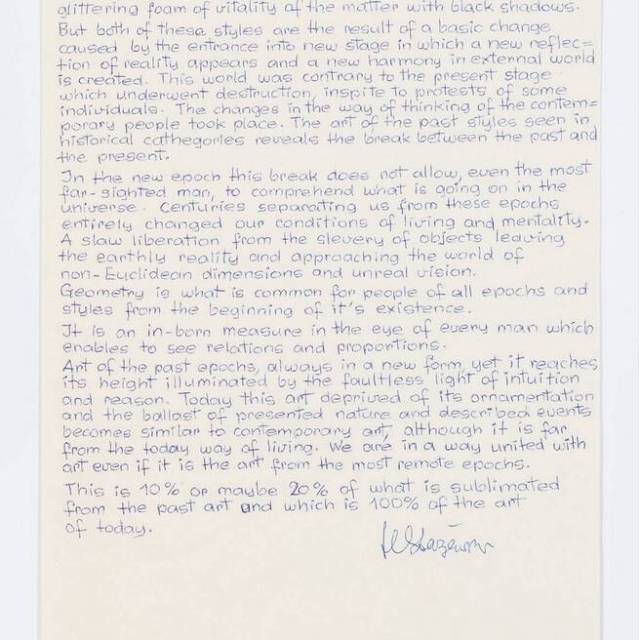 glittering foam of vitality of the matter with black shadows.
But both of these styles are the result of a basic change
caused by the entrance into new stage in which a new reflec=
tion of reality appears and a new harmony in external world
is created. This world was contrary to the present stage
which underwent destruction, inspite to protests of some
individuals. The changes in the way of thinking of the contem=
porary people took place. The art of the past styles seen in
historical cathegories reveals the break between the past and
the present.
In the new epoch this break does not allow, even the most
far-sighted man, to comprehend what is going on in the
universe. Centuries separating us from these epochs
entirely changed our conditions of living and mentality.
A slaw liberation from the slevery of objects leaving
the earthly reality and approaching the world of
non-Euclidean dimensions and unreal vision.
Geometry is what is common for people of all epochs and
styles from the beginning of it's existence.
It is an in-born measure in the eye of every man which
enables to see relations and proportions.
Art of the past epochs, always in a new form, yet it reaches
its height illuminated by the faultless light of intuition
and reason. Today this art deprived of its ornamentation
and the ballast of presented nature and described events
becomes similar to contemporary art, although it is far
from the today way of living. We are in a way united with
art even if it is the art from the most remote epochs.
This is 10% or maybe 20% of what is sublimated
from the past art and which is 100% of the art
of today.
HStażewski